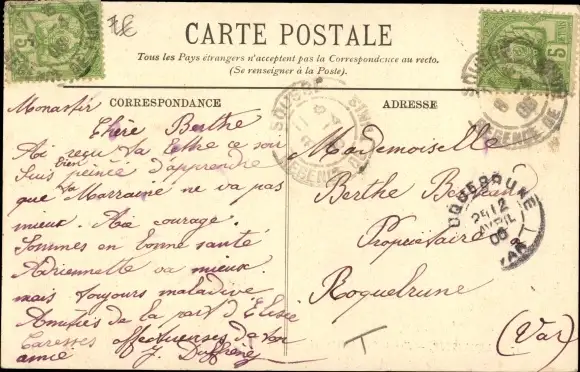 CARTE POSTALE
Tous les Pays étrangers n'acceptent pas la Correspondance au recto.
(Se renseigner à la Poste).
CORRESPONDANCE
Monastir
Chère Berthe
Ai reçu ta lettre ce soir
Suis bien peinée d'apprendre
que ta Marraine ne va pas
mieux. Aie courage.
Sommes en bonne santé
Adriennette va mieux.
mais toujours maladive
Amitiés de la part d'Elisée
Caresses affectueuses de ton
amie
ADRESSE
Mademoiselle
Berthe
Propriétaire à
Roquebrune
(Var)
T
5
5
SOUSSE
REGENCE DE TUNIS
ROQUEBRUNE
12
AVRIL
06
VAR